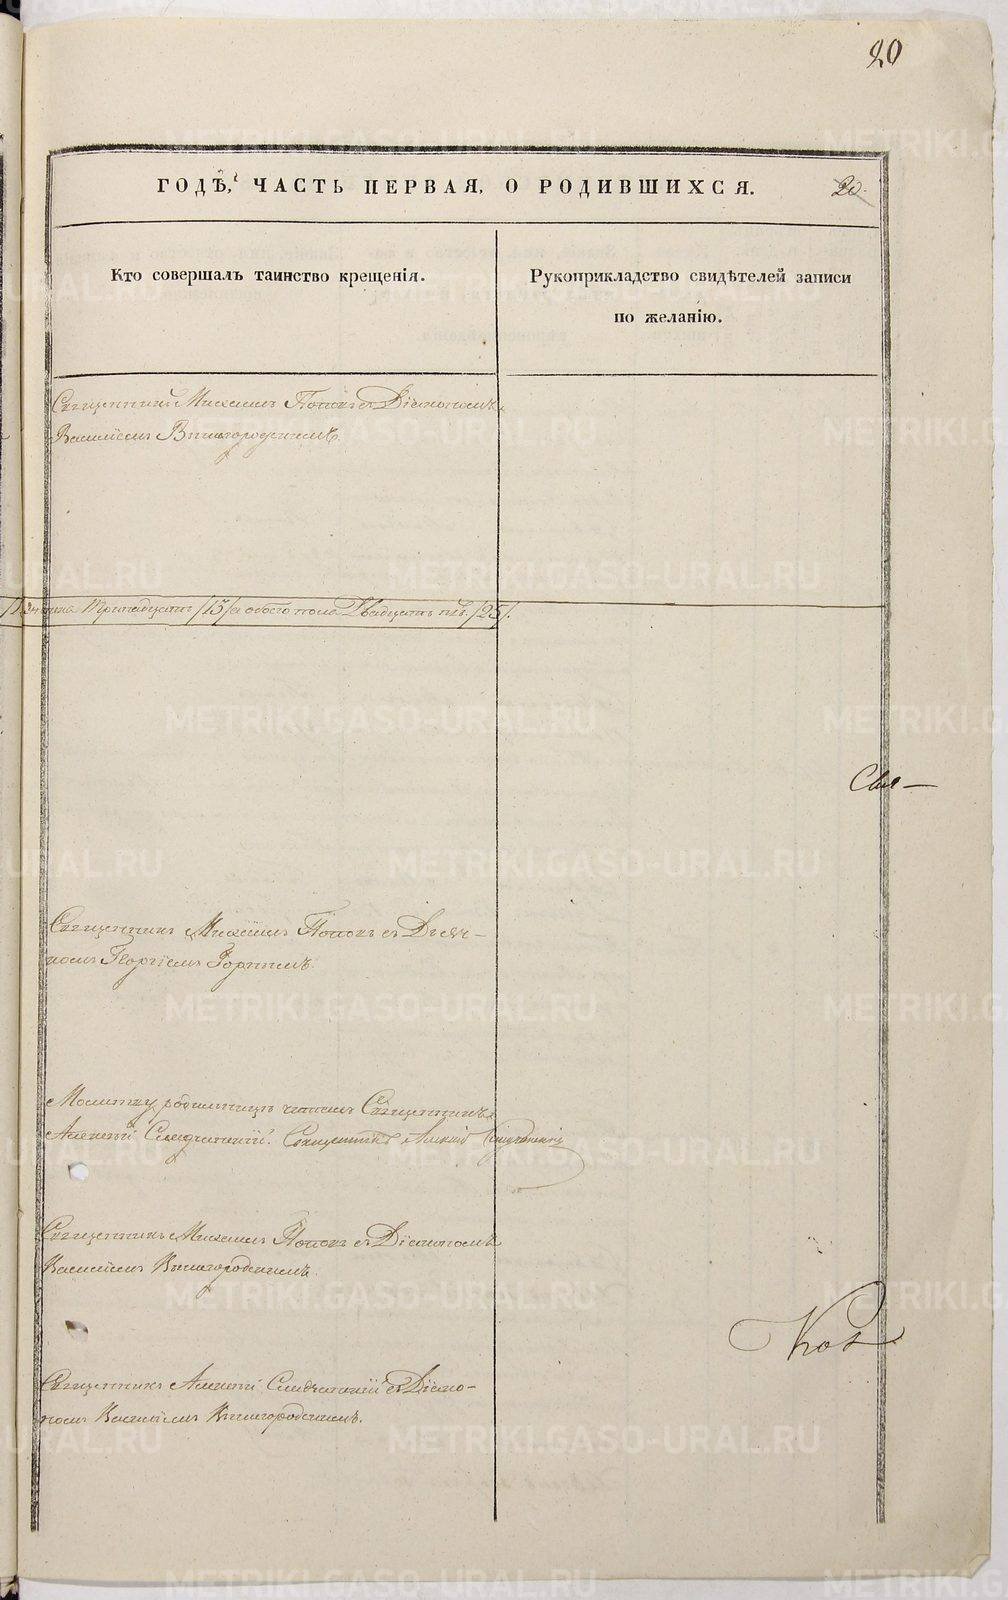 20
ГОДѢ, ЧАСТЬ ПЕРВАЯ, О РОДИВШИХСЯ.
20.
Кто совершалъ таинство крещенія.
Рукоприкладство свидѣтелей записи
по желанію.
Священникъ Михаилъ Поповъ съ Діакономъ
Василіемъ Вышгородскимъ.
Тринадцать /13/ а обоего пола Двадцать пять /25/.
Свя—
Священникъ Михаилъ Поповъ съ Дьяч-
комъ Георгіемъ
Молитву родильницѣ читалъ Священникъ
Алексій Священникъ Алексій
Священникъ Михаилъ Поповъ съ Діакономъ
Василіемъ Вышгородскимъ.
Священникъ Алексій съ Діако-
номъ Василіемъ Вышгородскимъ.
METRIKI.GASO-URAL.RU